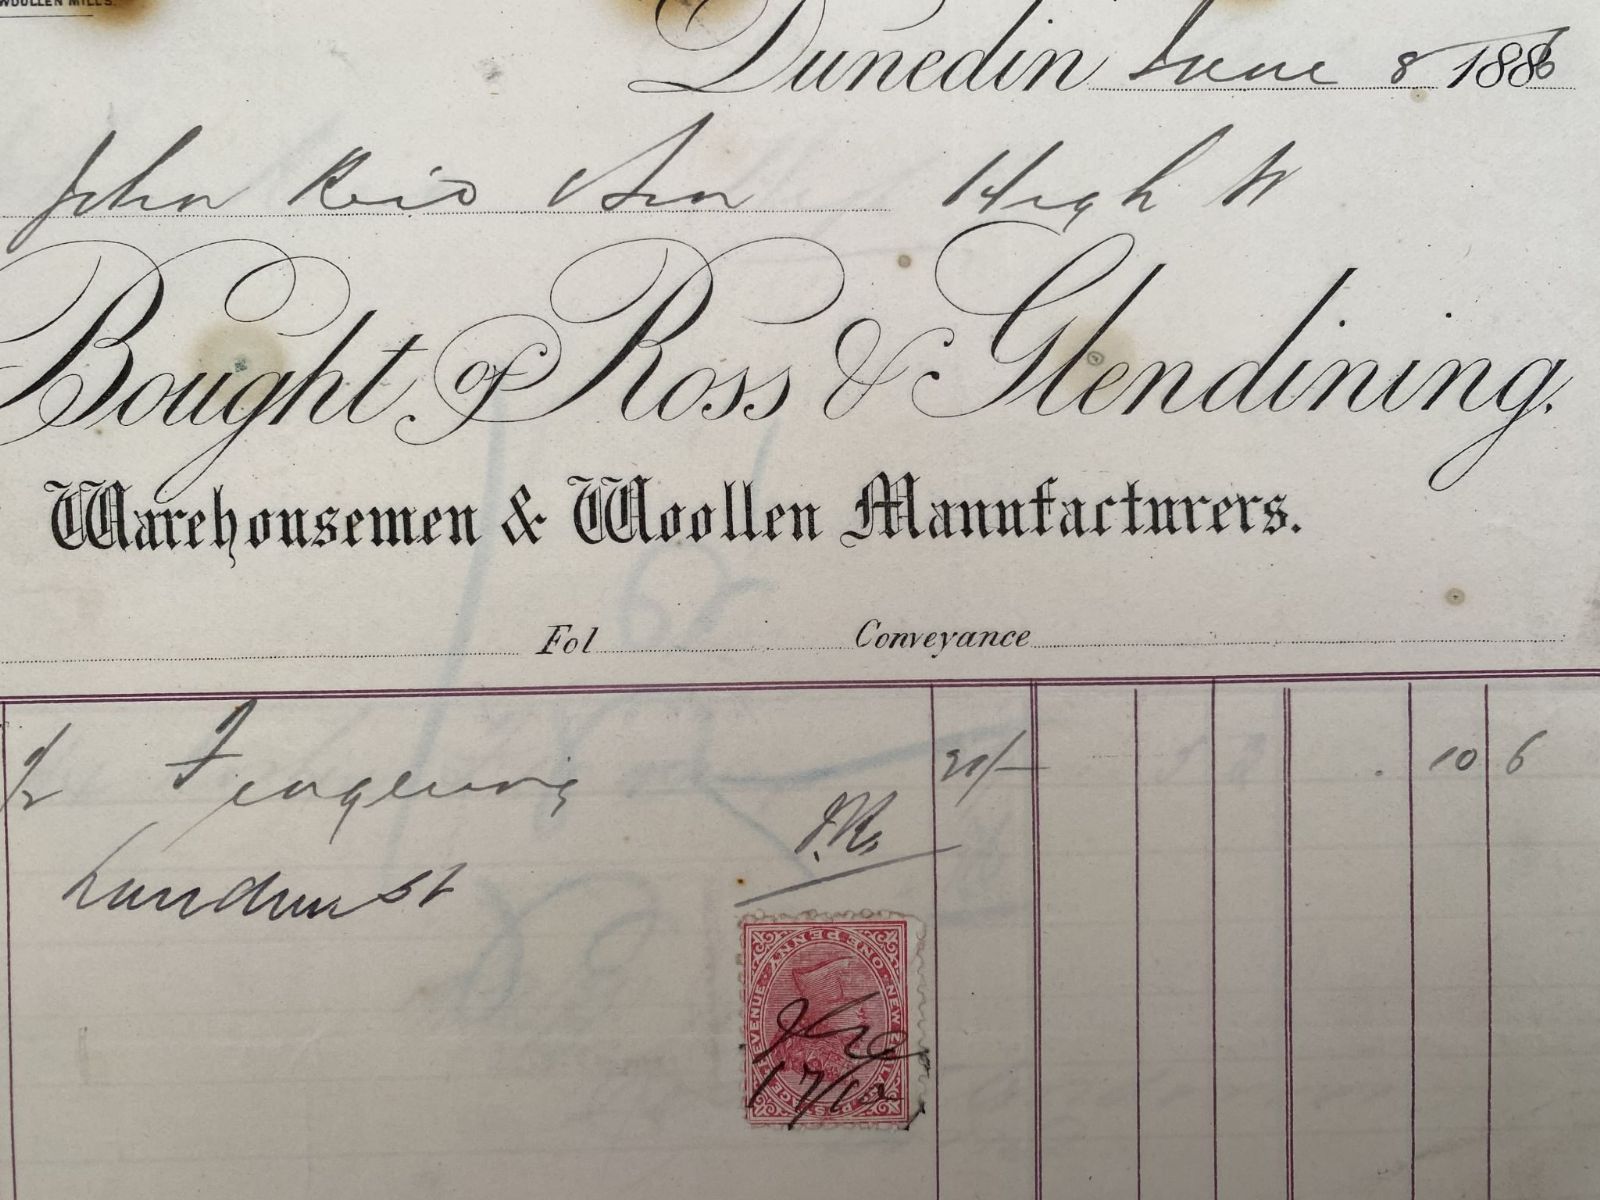 WOOLLEN MILLS.
Dunedin June 8 1886
John Reid & Son High St
Bought of Ross & Glendining.
Warehousemen & Woollen Manufacturers.
Fol Conveyance
1/2 21/- 10 6
J.R.
POSTAGE & REVENUE · ONE PENNY · NEW ZEALAND
17/12